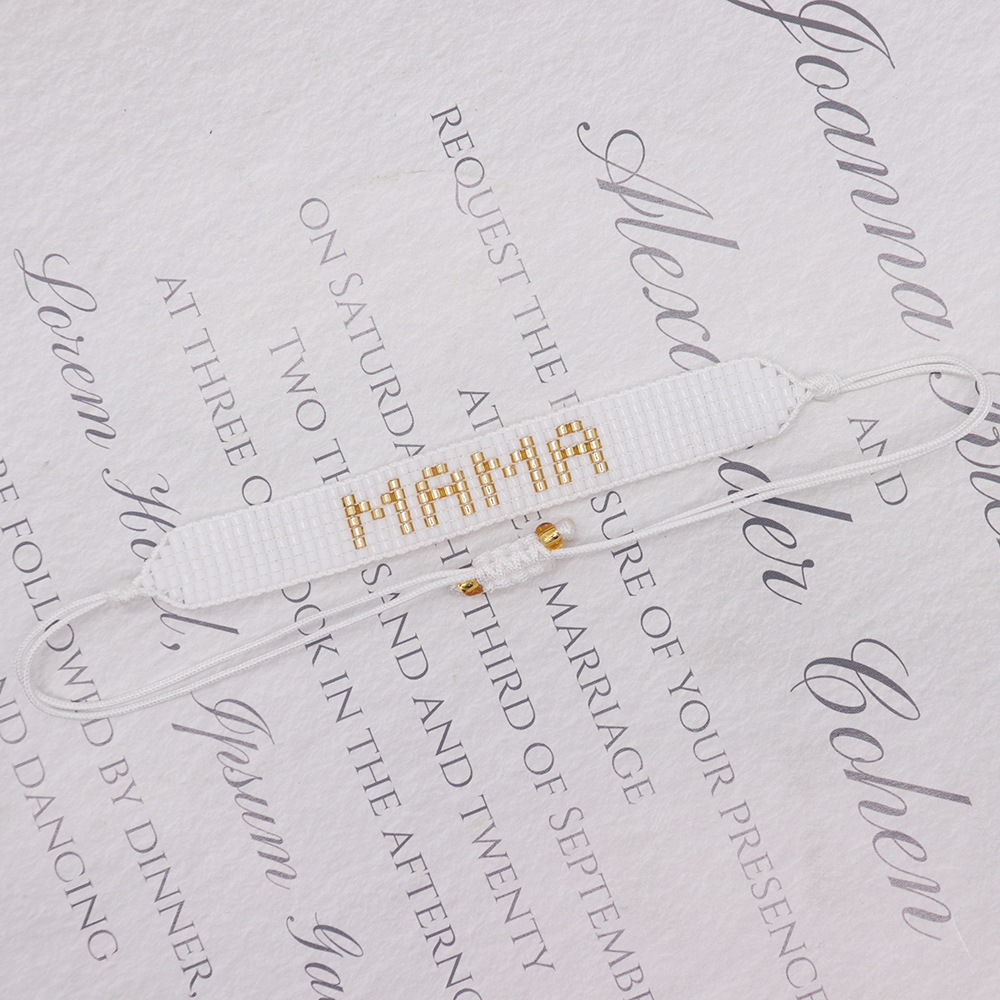 MAMA
Joanna
AND
Cohen
REQUEST THE
SURE OF YOUR PRESENCE
AT
MARRIAGE
ON SATURDA
THIRD OF SEPTEMB
TWO TH
SAND AND TWENTY
AT THREE O
OCK IN THE AFTERN
Lorem
Ipsum
BE FOLLOWED BY DINNER,
ND DANCING